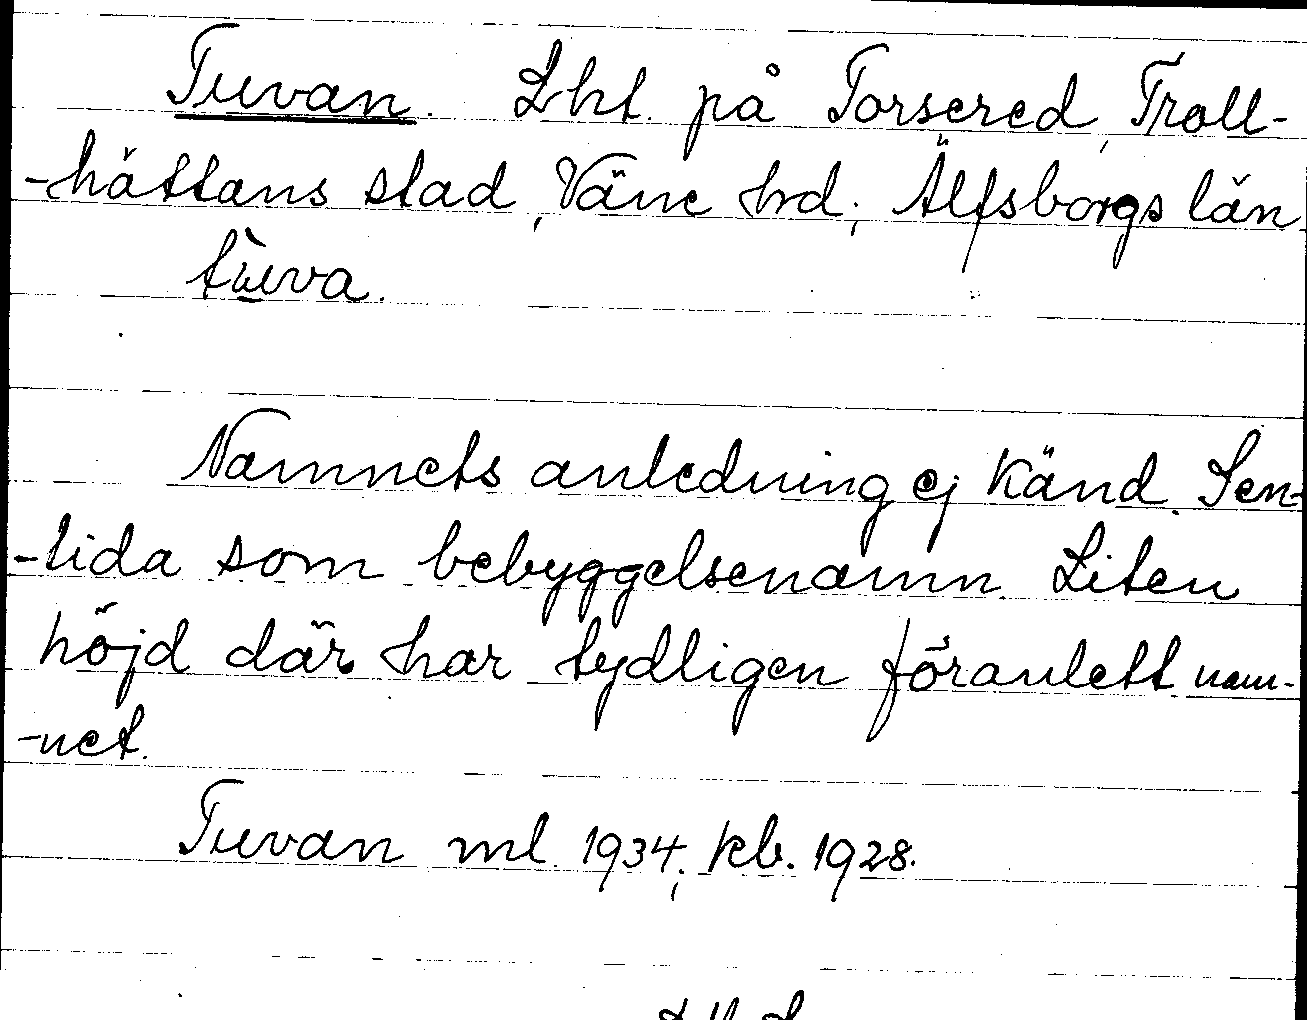 Tuvan. Lht. på Torsered, Troll-
-hättans stad, Väne hrd; Älfsborgs län
Namnets anledning ej känd. Sen-
-tida som bebyggelsenamn. Liten
höjd där har tydligen föranlett nam-
-net.
Tuvan ml. 1934; kb. 1928.